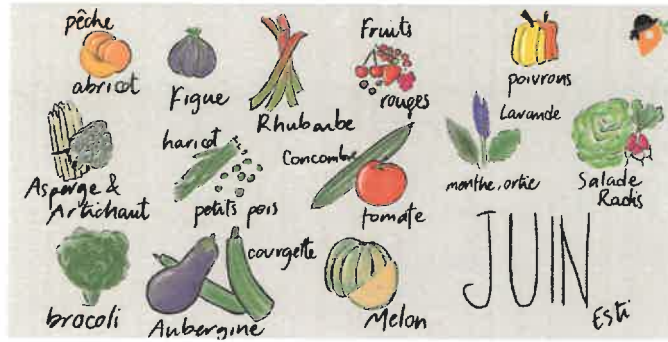 pêche
abricot
Figue
Rhubarbe
Fruits
rouges
poivrons
Asperge &
Artichaut
haricot
petits pois
Concombre
tomate
Lavande
menthe, ortie
Salade
Radis
brocoli
Aubergine
courgette
Melon
JUIN
Esti